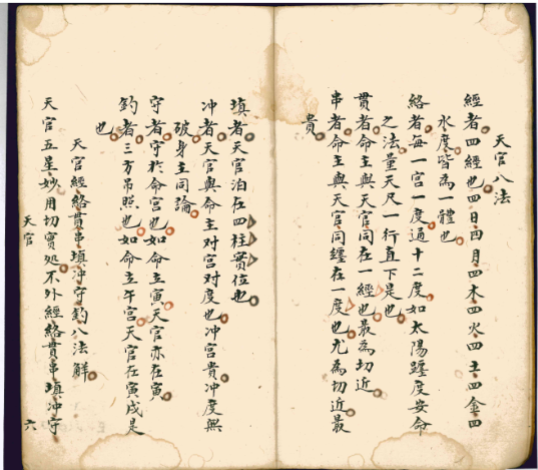 天官八法
經者四經也四日四月四木四火四土四金四
水度皆為一體也
絡者每一宮一度通十二度如太陽躔度安命
之法量天尺一行直下是也
貫者命主與天官同在一經也最為切近
串者命主與天官同躔在一度也尤為切近最
貴
填者天官泊在四柱實位也
冲者天官與命主对宮对度也冲宮貴冲度無
破身主同論
守者守於命宮也如命立寅天官亦在寅
釣者三方吊照也如命立午宮天官在寅戌是
也
天官經絡貫串填冲守釣八法解
天官五星妙用切實処不外經絡貫串填冲守
天官
六